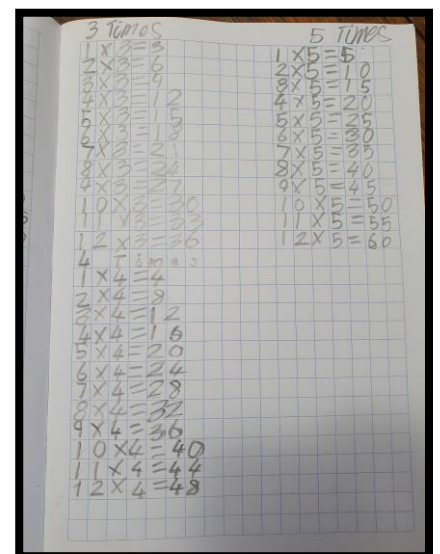 3 Times
1 x 3 = 3
2 x 3 = 6
3 x 3 = 9
4 x 3 = 12
5 x 3 = 15
6 x 3 = 18
7 x 3 = 21
8 x 3 = 24
9 x 3 = 27
10 x 3 = 30
11 x 3 = 33
12 x 3 = 36
4 Times
1 x 4 = 4
2 x 4 = 8
3 x 4 = 12
4 x 4 = 16
5 x 4 = 20
6 x 4 = 24
7 x 4 = 28
8 x 4 = 32
9 x 4 = 36
10 x 4 = 40
11 x 4 = 44
12 x 4 = 48
5 Times
1 x 5 = 5
2 x 5 = 10
3 x 5 = 15
4 x 5 = 20
5 x 5 = 25
6 x 5 = 30
7 x 5 = 35
8 x 5 = 40
9 x 5 = 45
10 x 5 = 50
11 x 5 = 55
12 x 5 = 60